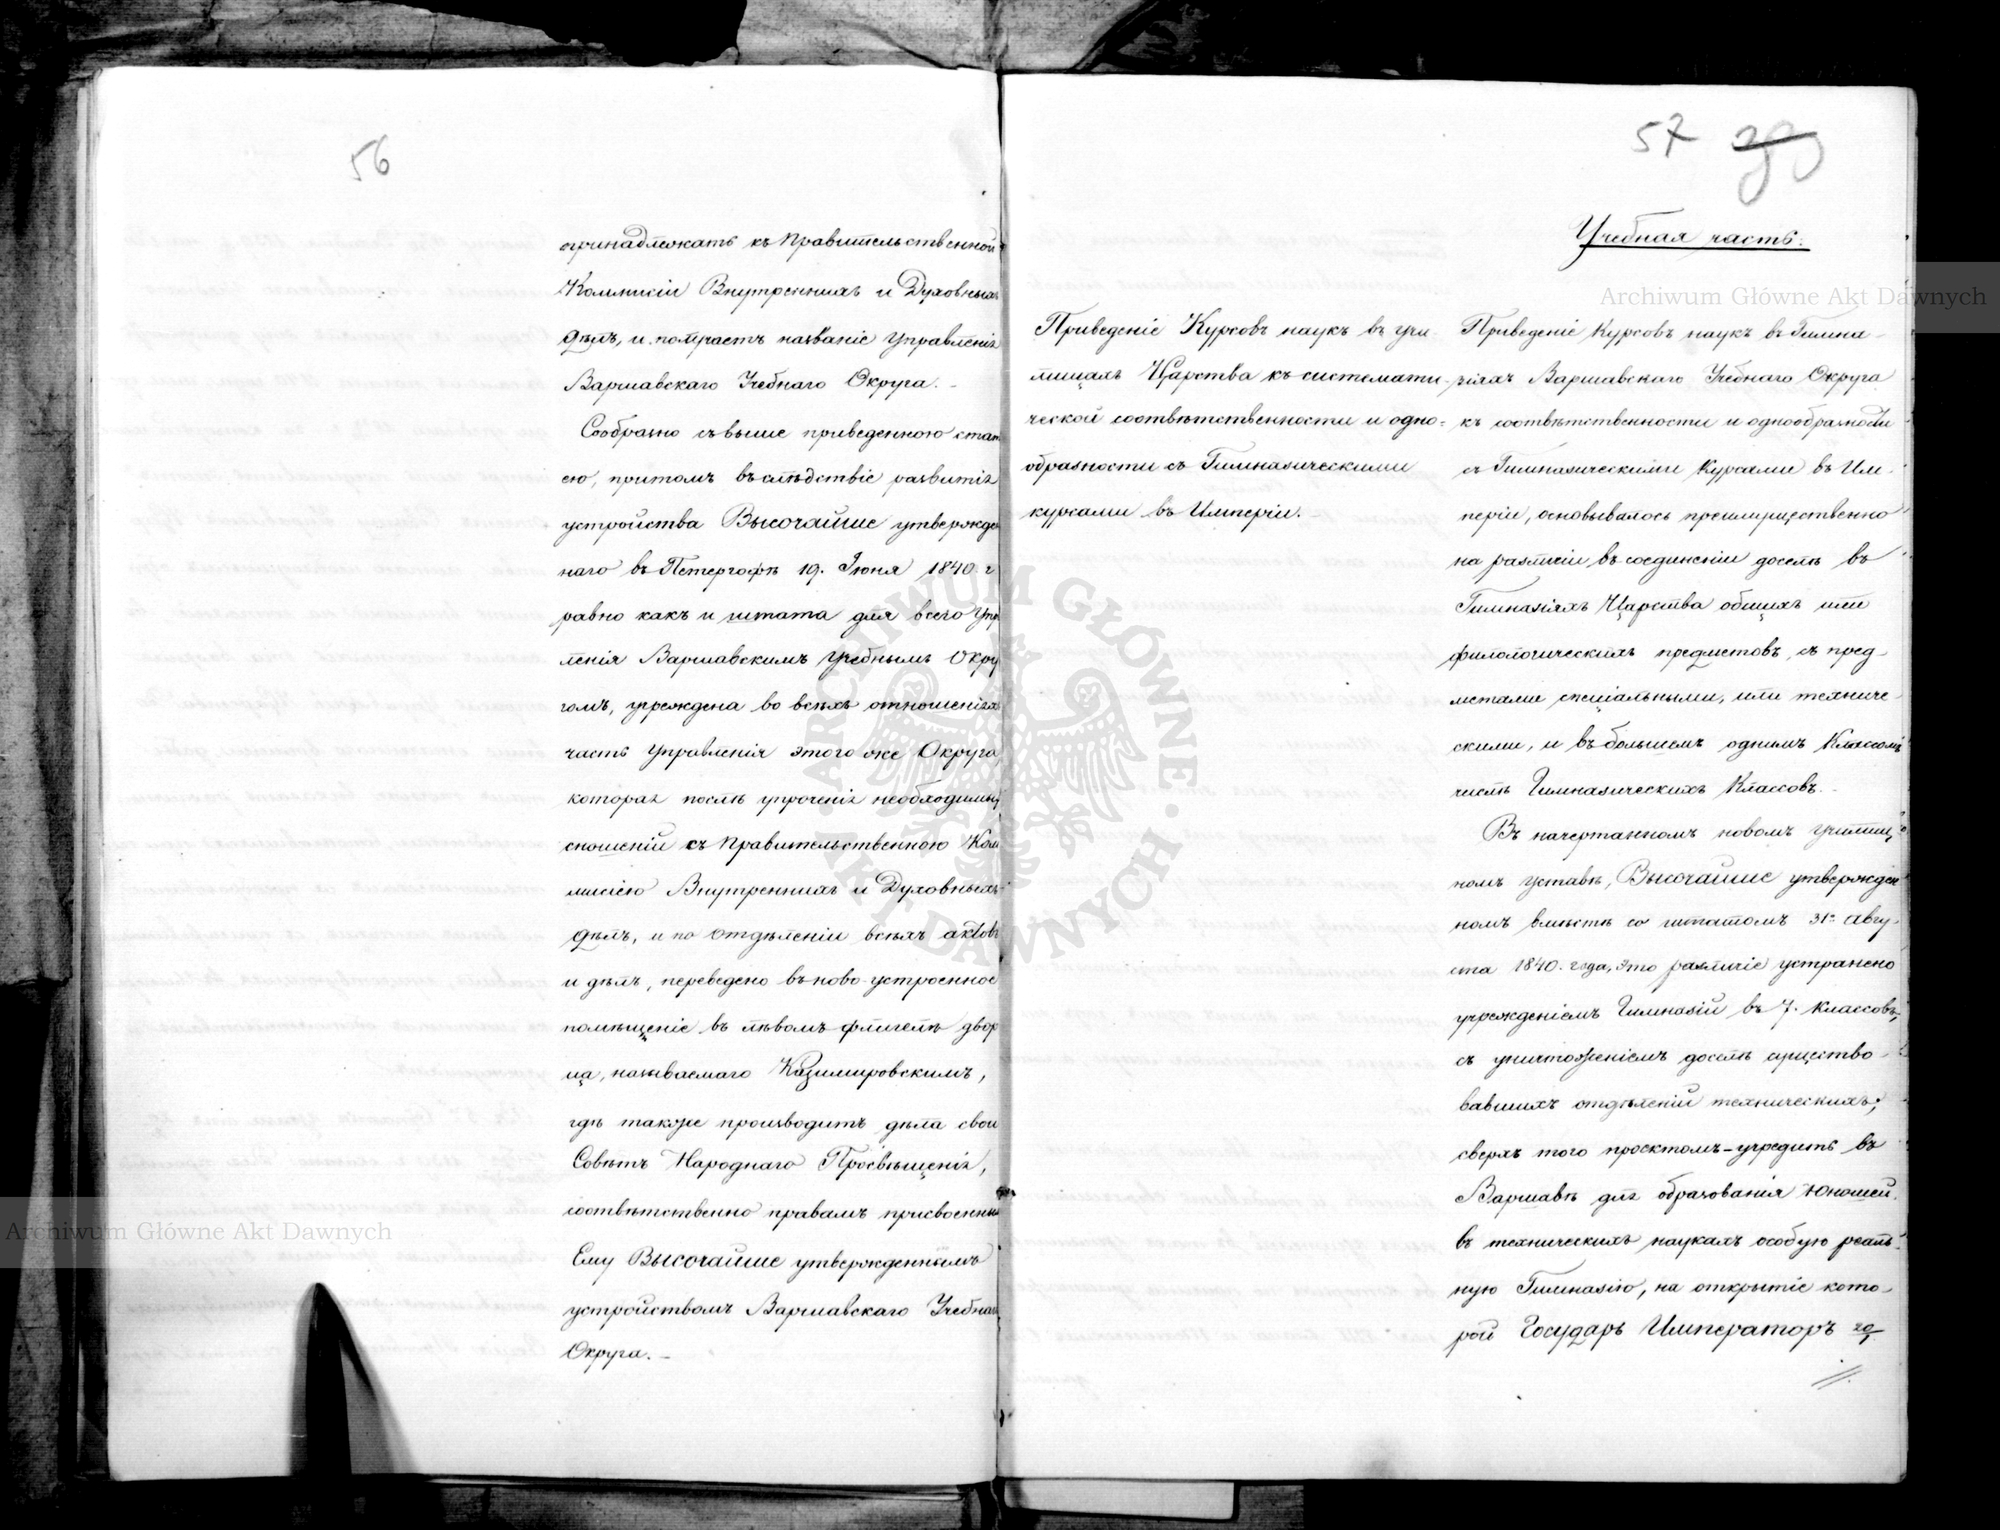 56
принадлежать къ Правительственной
Коммисіи Внутреннихъ и Духовныхъ
Дѣлъ, и получаетъ названіе Управленія
Варшавскаго Учебнаго Округа. –
Сообразно съ выше приведенною стат
ею, притомъ въ слѣдствіе развитія
устройства Высочайше утвержде
наго въ Петергофѣ 19. Іюня 1840. г
равно какъ и штата для всего Упр
ленія Варшавскимъ Учебнымъ Окру
гомъ, учреждена во всѣхъ отношеніяхъ
часть Управленія этого же Округа,
которая послѣ упроченія необходимы
сношеній съ Правительственною Ком
мисіею Внутреннихъ и Духовныхъ
Дѣлъ, и по отдѣленіи всѣхъ актовъ
и дѣлъ, переведено въ ново-устроенное
помѣщеніе въ лѣвомъ флигелѣ двор
ца, называемаго Казимировскимъ,
гдѣ также производитъ дѣла свои
Совѣтъ Народнаго Просвѣщенія,
соотвѣтственно правамъ присвоеннымъ
Ему Высочайше утвержденнымъ
устройствомъ Варшавскаго Учебнаго
Округа. –
57
Учебная часть.
Приведеніе Курсовъ наукъ въ учи-
лищахъ Царства къ системати-
ческой соотвѣтственности и одно-
образности съ Гимназическими
курсами въ Имперіи. –
Приведеніе Курсовъ наукъ въ Гимна-
зіяхъ Варшавскаго Учебнаго Округа
къ соотвѣтственности и однообразности
съ Гимназическими Курсами въ Им-
періи, основывалось преимущественно
на различіи въ соединеніи доселѣ въ
Гимназіяхъ Царства общихъ или
филологическихъ предметовъ, съ пред-
метами спеціальными, или техниче-
скими, и въ большемъ однимъ Классомъ
числѣ Гимназическихъ Классовъ. –
Въ начертанномъ новомъ училищ
номъ уставѣ, Высочайше утвержден
номъ вмѣстѣ со штатомъ 31го Авгу-
ста 1840. года, это различіе устранено
учрежденіемъ Гимназій въ 7. Классовъ,
съ уничтоженіемъ доселѣ существо-
вавшихъ отдѣленій техническихъ;
сверхъ того проектомъ-учредить въ
Варшавѣ для образованія Юношей
въ техническихъ наукахъ особую реаль-
ную Гимназію, на открытіе кото-
рой Государь Императоръ 20/
Archiwum Główne Akt Dawnych
Archiwum Główne Akt Dawnych
ARCHIWUM GŁÓWNE AKT DAWNYCH